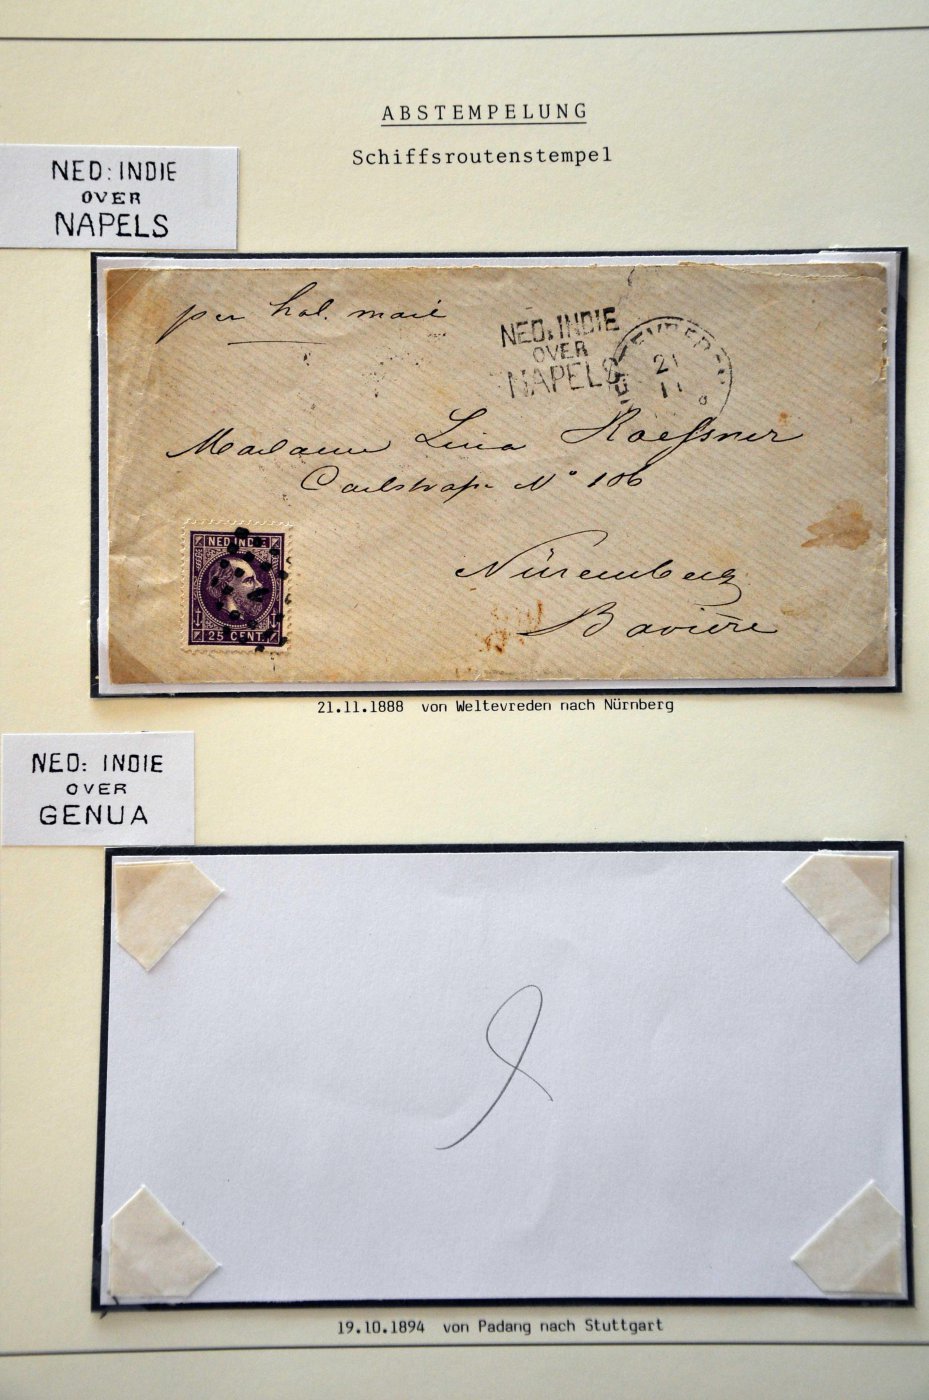 ABSTEMPELUNG
Schiffsroutenstempel
NED: INDIE
OVER
NAPELS
per hol. mail
NED: INDIE
OVER
NAPELS
21
11
Madame Lina
Carlstrasse No 106
Nüremberg
Bavière
NED INDIE
25 CENT.
21.11.1888 von Weltevreden nach Nürnberg
NED: INDIE
OVER
GENUA
19.10.1894 von Padang nach Stuttgart